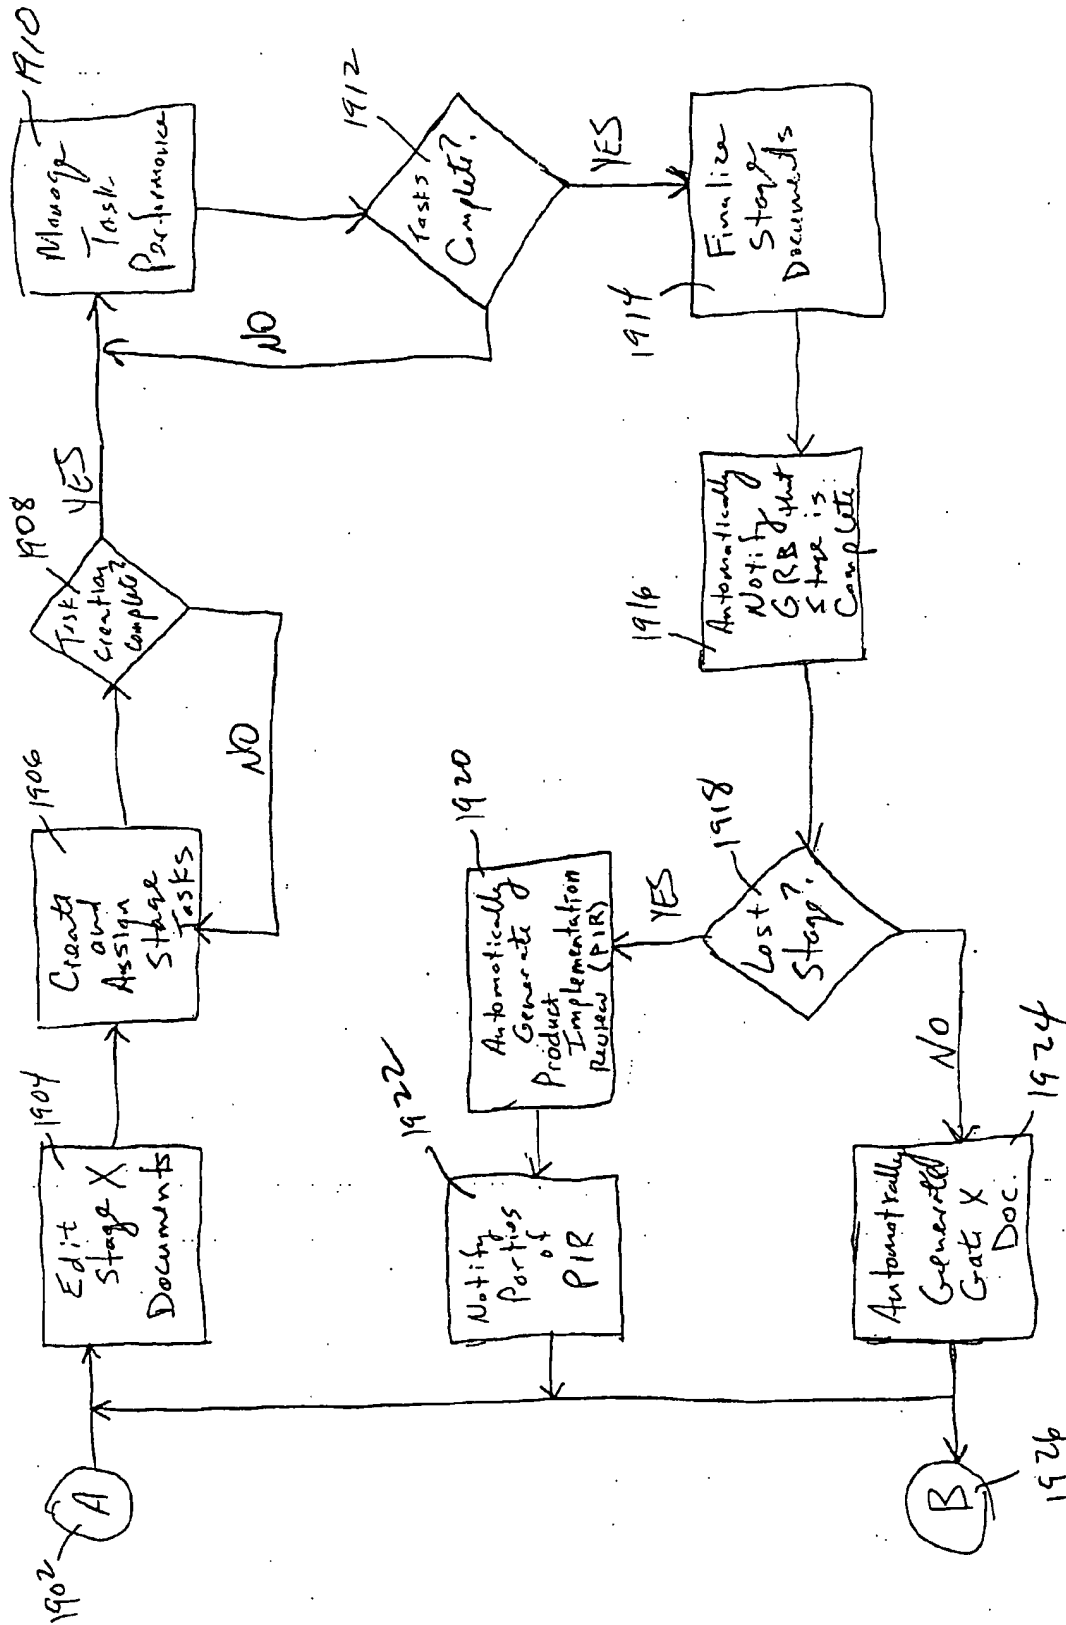 1902
A
1904
Edit
Stage X
Documents
1906
Create
and
Assign
Stage
Tasks
1908
Task
Creation
Complete?
YES
NO
1910
Manage
Task
Performance
1912
Tasks
Complete?
NO
YES
1914
Finalize
Stage
Documents
1916
Automatically
Notify
GRB that
Stage is
Complete
1918
Last
Stage?
YES
NO
1920
Automatically
Generate
Product
Implementation
Review (PIR)
1922
Notify
Parties
of
PIR
1924
Automatically
Generated
Gate X
Doc.
B
1926